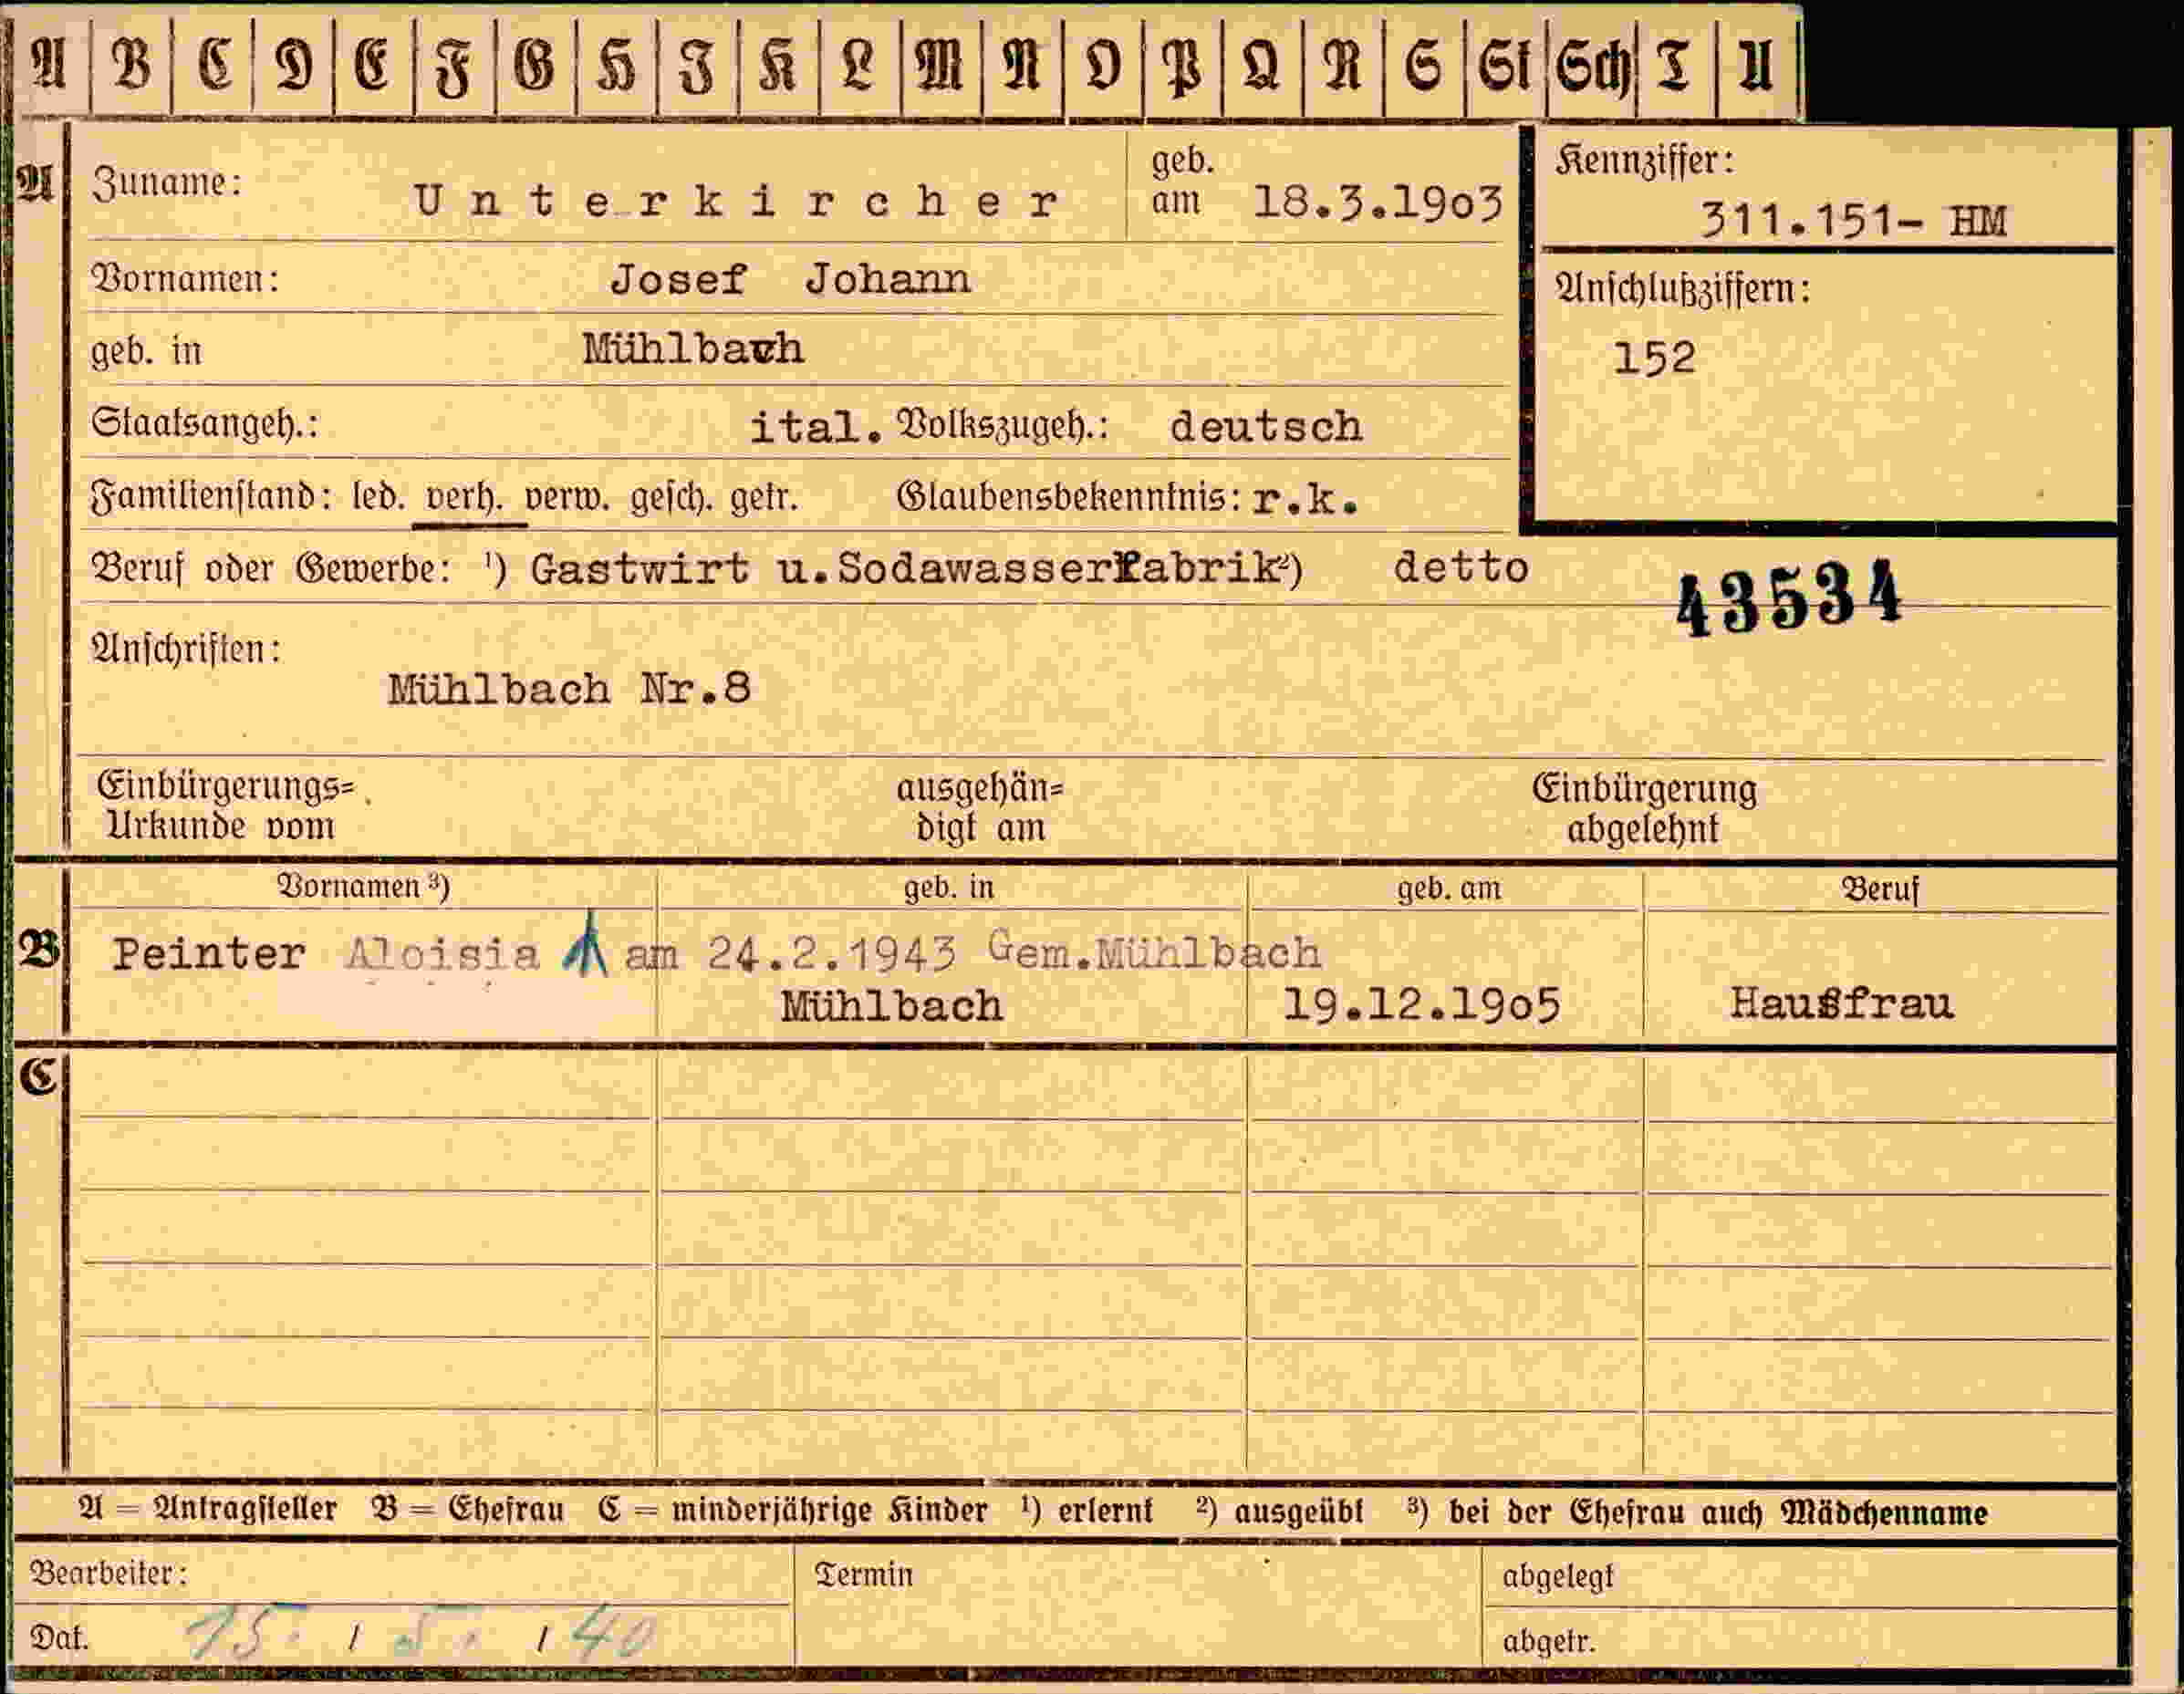 A B C D E F G H I K L M N O P Q R S St Sch T U
A Zuname: Unterkircher geb. am 18.3.1903
Kennziffer: 311.151- HM
Vornamen: Josef Johann
Anschlußziffern:
152
geb. in Mühlbach
Staatsangeh.: ital. Volkszugeh.: deutsch
Familienstand: led. verh. verw. gesch. getr. Glaubensbekenntnis: r.k.
Beruf oder Gewerbe: ¹) Gastwirt u.Sodawasserfabrik ²) detto
43534
Anschriften:
Mühlbach Nr.8
Einbürgerungs=
Urkunde vom
ausgehän=
digt am
Einbürgerung
abgelehnt
Vornamen ³) geb. in geb. am Beruf
B Peinter Aloisia am 24.2.1943 Gem.Mühlbach
Mühlbach 19.12.1905 Hausfrau
C
A = Antragsteller B = Ehefrau C = minderjährige Kinder ¹) erlernt ²) ausgeübt ³) bei der Ehefrau auch Mädchenname
Bearbeiter: Termin abgelegt
Dat. 15. / 5. / 40 abgetr.